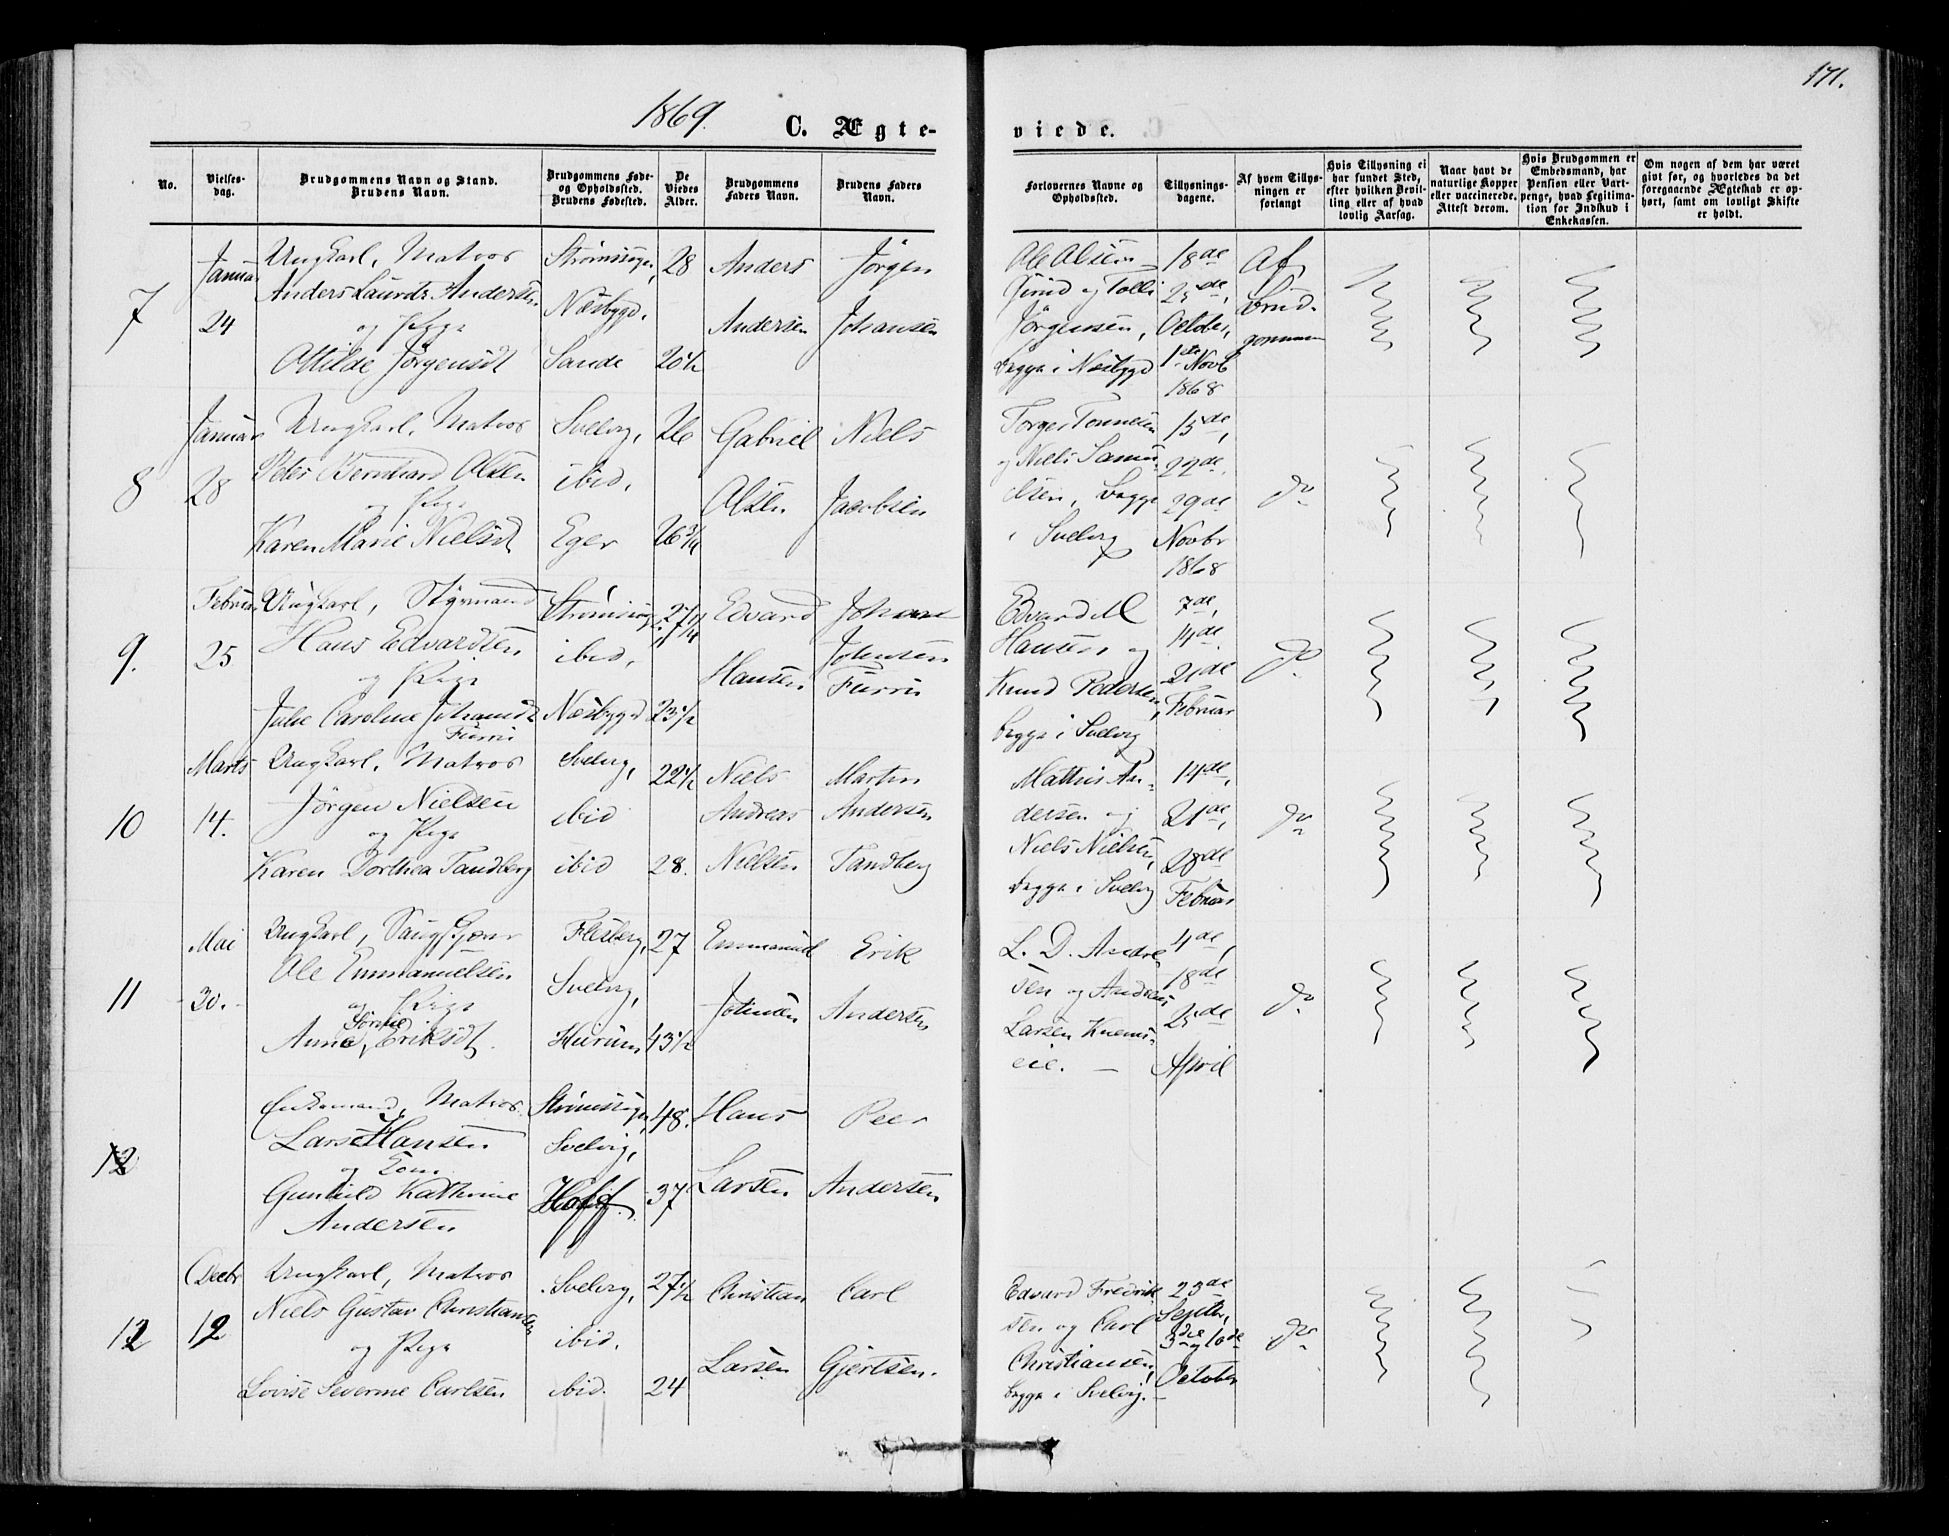 171.
1869.
C. Ægte-
viede.
No.
Vielses-
dag.
Brudgommens Navn og Stand.
Brudens Navn.
Brudgommens Føde-
og Opholdssted.
Brudens Fødested.
De
Viedes
Alder.
Brudgommens
Faders Navn.
Brudens Faders
Navn.
Forlovernes Navne og
Opholdssted.
Tillysnings-
dagene.
Af hvem Tillys-
ningen er
forlangt
Hvis Tillysning ei
har fundet Sted,
efter hvilken Bevil-
ling eller af hvad
lovlig Aarsag.
Naar havt de
naturlige Kopper
eller vaccinerede.
Attest derom.
Hvis Brudgommen er
Embedsmand, har
Pension eller Vart-
penge, hvad Legitima-
tion for Indskud i
Enkekassen.
Om nogen af dem har været
givt før, og hvorledes da det
foregaaende Ægteskab er op-
hørt, samt om lovligt Skifte
er holdt.
7
Januar
24
Ungkarl, Matros
Anders Laurits Andersen
og Pige
Ottilde Jörgensdt
Strömssogn,
Næsbygd,
Sande
28
20½
Anders
Andersen
Jörgen
Johansen
Ole Olsen
og Tolle
Jörgensen,
begge i Næsbygd
18de
25de,
October,
1ste Novb
1868
Af
Brud-
gommen
8
Januar
28
Ungkarl, Matros
Peter Bernhard Olsen
og Pige
Karen Marie Nielsdt
Svelvig,
ibid,
Eger
26
26¾
Gabriel
Olsen
Niels
Jacobsen
Torger Tonnesen
og Niels Samu-
elsen, begge
i Svelvig
15de,
22de,
29de
Novbr
1868
do
9.
Februar
25
Ungkarl, Styrmand
Hans Edvardsen
og Pige
Julie Caroline Johansdt
Furru
Strömssogn
ibid,
Næsbygd
27¼
23½
Edvard
Hansen
Johan
Johnsen
Furru
Edvard M
Hansen og
Knud Pedersen,
begge i Svelvig
7de,
14de,
21de
Februar
do
10
Marts
14.
Ungkarl, Matros
Jörgen Nielsen
og Pige
Karen Dorthea Tandberg
Svelvig,
ibid
ibid
22½
28.
Niels
Andreas
Nielsen
Martin
Andersen
Tandberg
Mathis An-
dersen og
Niels Nielsen,
begge i Svelvig
14de,
21de,
28de
Februar
do
11
Mai
30.
Ungkarl,
Ole Emmanuelsen
og Pige
Sörine
Anne Eriksdt.
Flesberg,
Svelvig,
Hurum
27
43½
Emmanuel
Johnsen
Erik
Andersen
L. D. Andre-
sen og Andreas
Larsen Knems-
eie.
4de,
18de
25de
April
do
12
Enkemand, Matros
Lars Hansen
og
Gunhild Kathrine
Andersen
Strömssogn,
Svelvig,
Hoff.
48.
37
Hans
Larsen
Peer
Andersen
12
Decbr
12
Ungkarl, Matros
Niels Gustav Christiansen
og Pige
Lovise Severine Carlsen
Svelvig,
ibid.
ibid.
27½
24
Christian
Larsen
Carl
Gjertsen.
Edvard Fredrik-
sen og Carl
Christiansen,
begge i Svelvig.
23de
Septbr,
3die og 10de
October
do